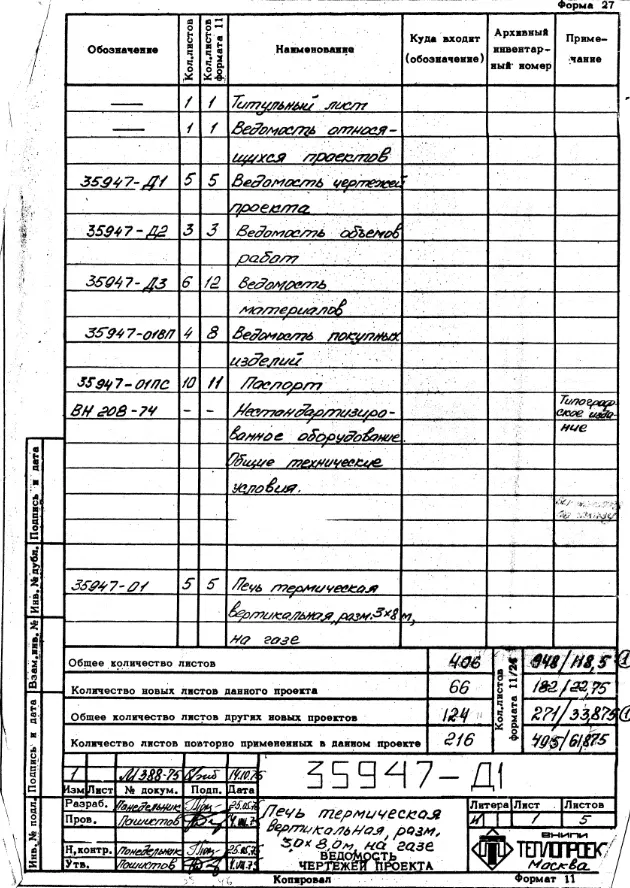 Форма 27
Обозначение Кол.листов Кол.листов формата 11 Наименование Куда входит (обозначение) Архивный инвентар-ный номер Приме-чание
— 1 1 Титульный лист
— 1 1 Ведомость относя-
щихся проектов
35947-Д1 5 5 Ведомость чертежей
проекта
35947-Д2 3 3 Ведомость объемов
работ
35947-Д3 6 12 Ведомость
материалов
35947-01ВП 4 8 Ведомость покупных
изделий
35947-01ПС 10 11 Паспорт
ВН 208-74 - - Нестандартизиро- Типограф-
ванное оборудование. ское изда-
Общие технические ние
условия.
35947-01 5 5 Печь термическая
вертикальная, разм. 3×8 м,
на газе
Общее количество листов 406 948/118,5 1
Количество новых листов данного проекта 66 182/22,75
Общее количество листов других новых проектов 124 271/33,875 1
Количество листов повторно примененных в данном проекте 216 495/61,875
Кол.листов формата 11/24
1 М388-75 14.10.75
Изм Лист № докум. Подп. Дата
35947-Д1
Разраб. Понедельник
Пров. Пашистов
Н.контр. Понедельник
Утв. Пашистов
Печь термическая
вертикальная, разм.
3,0×8,0м, на газе
ВЕДОМОСТЬ
ЧЕРТЕЖЕЙ ПРОЕКТА
Литера Лист Листов
И 1 5
ВНИПИ
ТЕПЛОПРОЕКТ
Москва
Копировал Формат 11
Инв.№ подл. Подпись и дата Взам.инв.№ Инв.№ дубл. Подпись и дата